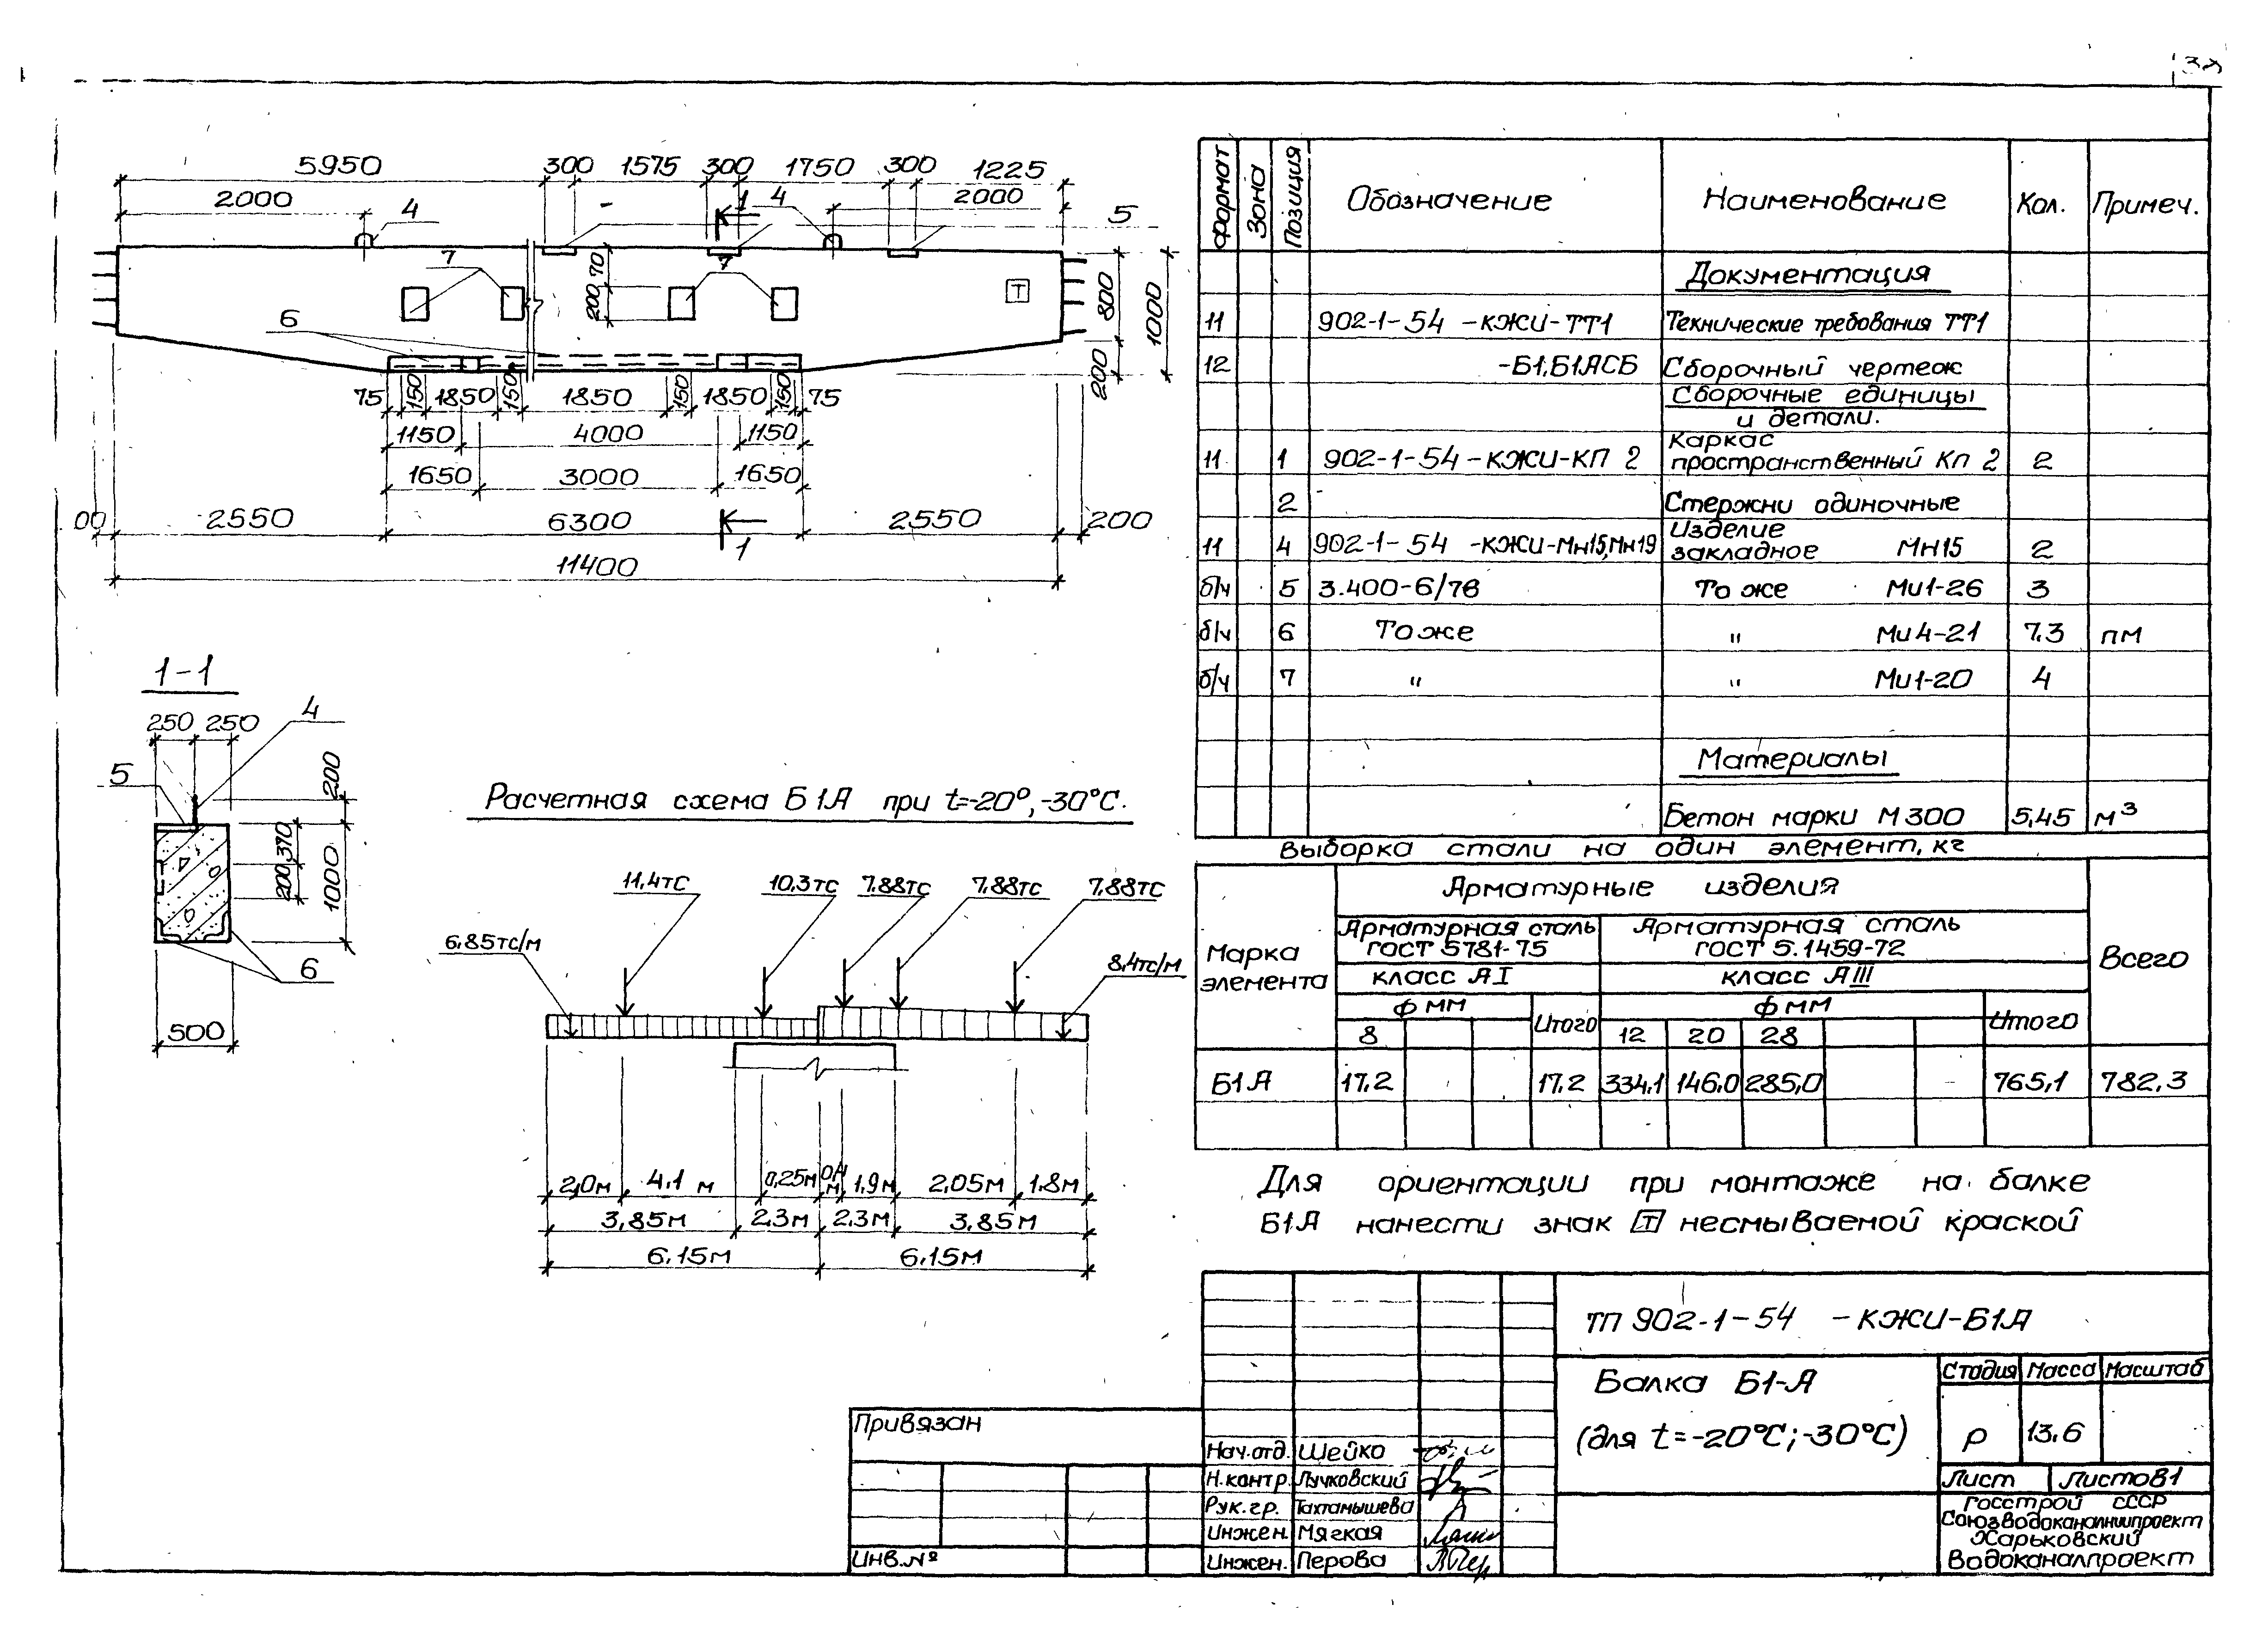 5950 300 1575 300 1750 300 1225
2000 4 1 4 2000 5
7 70 7 T
6 200 800 1000
200
75 150 1850 150 1850 150 1850 150 75
1150 4000 1150
1650 3000 1650
00 2550 6300 2550 200
1
11400
1-1
250 250 4
5 200
370
200 1000
6
500
Расчетная схема Б1А при t=-20°,-30°С.
11,4тс 10,3тс 7,88тс 7,88тс 7,88тс
6,85тс/м 8,4тс/м
2,0м 4,1 м 0,25м 0,4м 1,9м 2,05м 1,8м
3,85м 2,3м 2,3м 3,85м
6,15м 6,15м
Формат Зона Позиция Обозначение Наименование Кол. Примеч.
Документация
11 902-1-54 -КЖИ-ТТ1 Технические требования ТТ1
12 -Б1,Б1АСБ Сборочный чертеж
Сборочные единицы
и детали.
Каркас
11 1 902-1-54-КЖИ-КП 2 пространственный Кп 2 2
2 Стержни одиночные
Изделие
11 4 902-1-54 -КЖИ-Мн15,Мн19 закладное Мн15 2
б/ч 5 3.400-6/76 То же Ми1-26 3
б/ч 6 То же " Ми4-21 7.3 пм
б/ч 7 " " Ми1-20 4
Материалы
Бетон марки М300 5,45 м³
Выборка стали на один элемент, кг
Марка элемента Арматурные изделия Всего
Арматурная сталь ГОСТ 5781-75 Арматурная сталь ГОСТ 5.1459-72
класс АI класс АIII
ф мм Итого ф мм Итого
8 12 20 28
Б1А 17,2 17,2 334,1 146,0 285,0 765,1 782,3
Для ориентации при монтаже на балке
Б1А нанести знак T несмываемой краской
ТП 902-1-54 -КЖИ-Б1А
Балка Б1-А
(для t=-20°С;-30°С)
Стадия Масса Масштаб
р 13.6
Лист Листов1
Госстрой СССР
Союзводоканалниипроект
Харьковский
Водоканалпроект
Привязан
Инв.№
Нач.отд. Шейко
Н.контр. Лучковский
Рук.гр. Тахтамышева
Инжен. Мягкая
Инжен. Перова